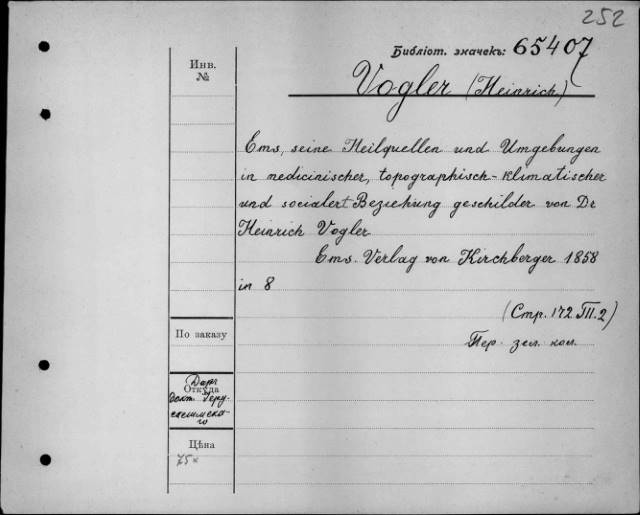 252
Библіот. значекъ: 65407
Инв.
№
Vogler (Heinrich)
Ems, seine Heilquellen und Umgebungen
in medicinischer, topographisch-klimatischer
und socialer Beziehung geschilder von Dr
Heinrich Vogler
Ems. Verlag von Kirchberger 1858
in 8
(Стр. 172 Т.2)
Пер. зел. кол.
По заказу
Даръ
Откуда
докт.
Цѣна
75к